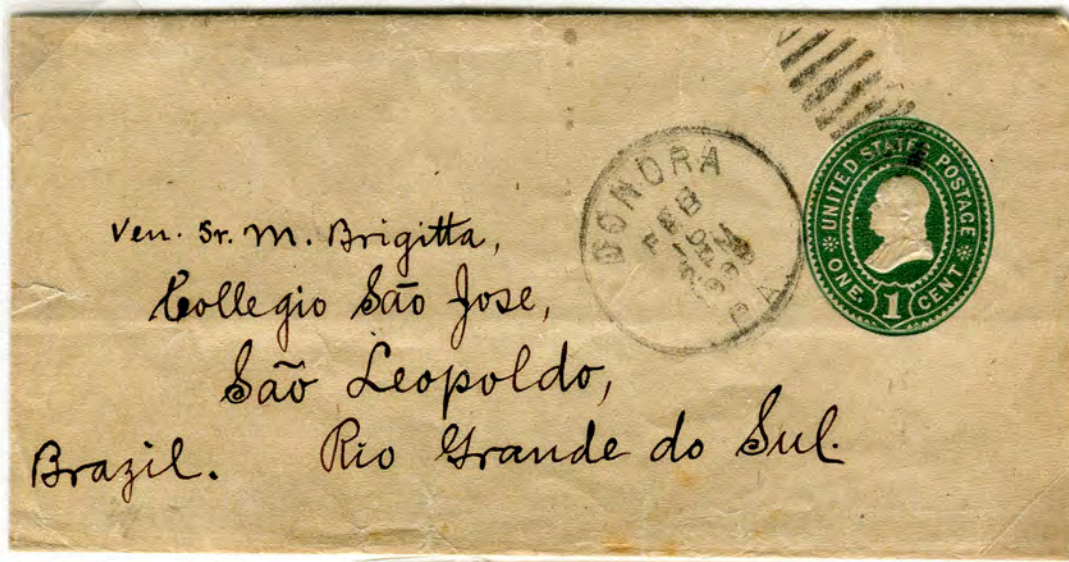 DONORA
FEB
PA
UNITED STATES POSTAGE
ONE. 1 CENT
Ven. Sr. M. Brigitta,
Collegio São Jose,
São Leopoldo,
Rio Grande do Sul.
Brazil.